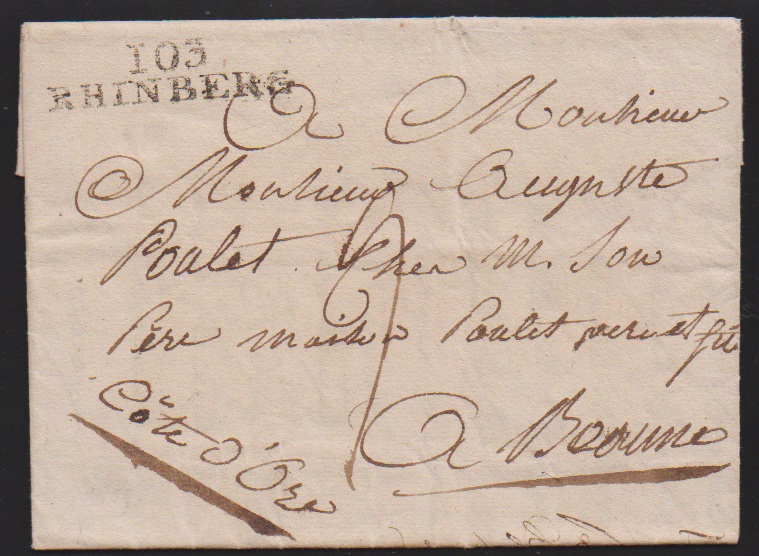 103
RHINBERG
A Monsieur
Monsieur Auguste
Poulet Chez M. Son
Père maison Poulet pere et fils
Côte d'Or
A Beaune